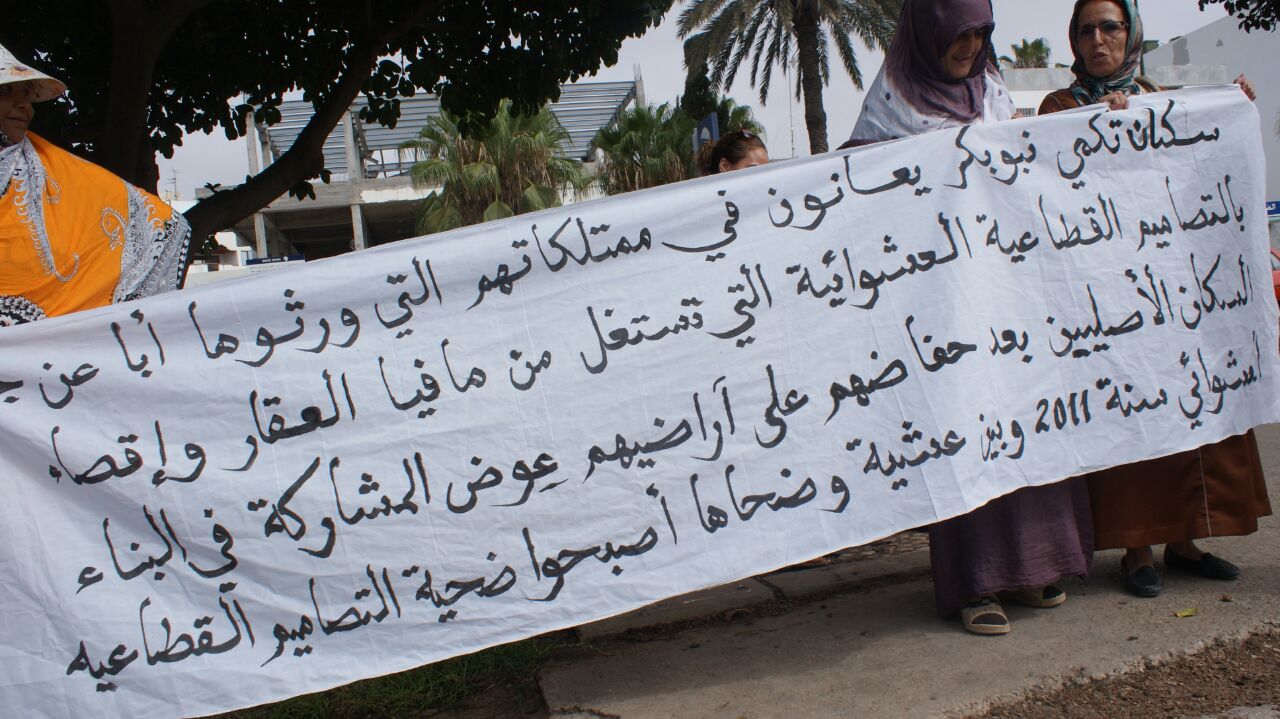 سكان تكمي نبوبكر يعانون في ممتلكاتهم التي ورثوها أبا عن
بالتصاميم القطاعية العشوائية التي تستغل من مافيا العقار وإقصاء
السكان الأصليين بعد حفاضهم على آراضيهم عوض المشاركة في البناء
العشوائي سنة 2011 وبين عشية وضحاها أصبحوا ضحية التصاميم القطاعيه